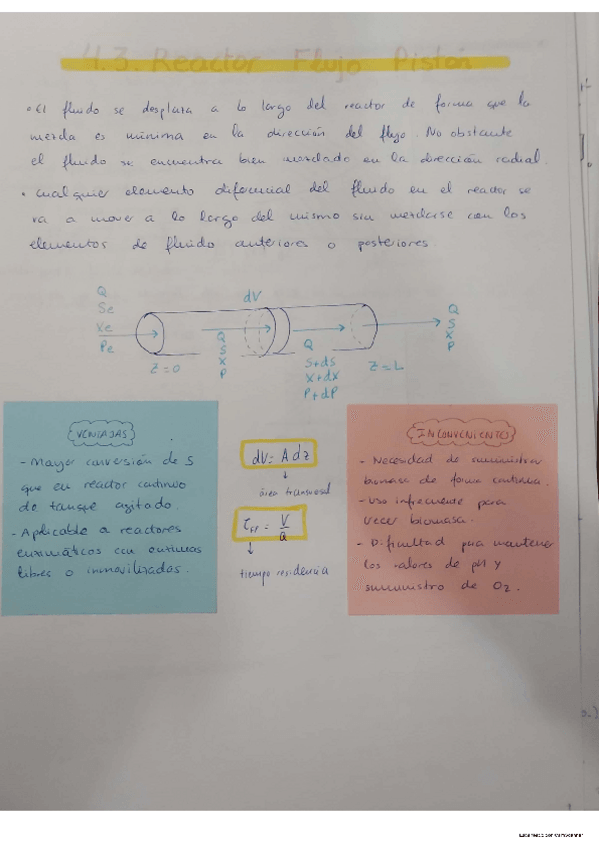 4.3. Reactor Flujo Pistón
• El fluido se desplaza a lo largo del reactor de forma que la
mezcla es mínima en la dirección del flujo. No obstante
el fluido se encuentra bien mezclado en la dirección radial.
• Cualquier elemento diferencial del fluido en el reactor se
va a mover a lo largo del mismo sin mezclarse con los
elementos de fluido anteriores o posteriores.
Q
Se
Xe
Pe
dV
Q
S
X
P
Q
S+dS
X+dX
P+dP
Q
S
X
P
Z=0
Z=L
VENTAJAS
- Mayor conversión de S
que en reactor continuo
de tanque agitado.
- Aplicable a reactores
enzimáticos con enzimas
libres o inmovilizados.
dV= A dz
↓
área transversal
V
Q
↓
tiempo residencia
INCONVENIENTES
- Necesidad de suministrar
biomasa de forma continua.
- Uso infrecuente para
crecer biomasa.
- Dificultad para mantener
los valores de pH y
suministro de O2.